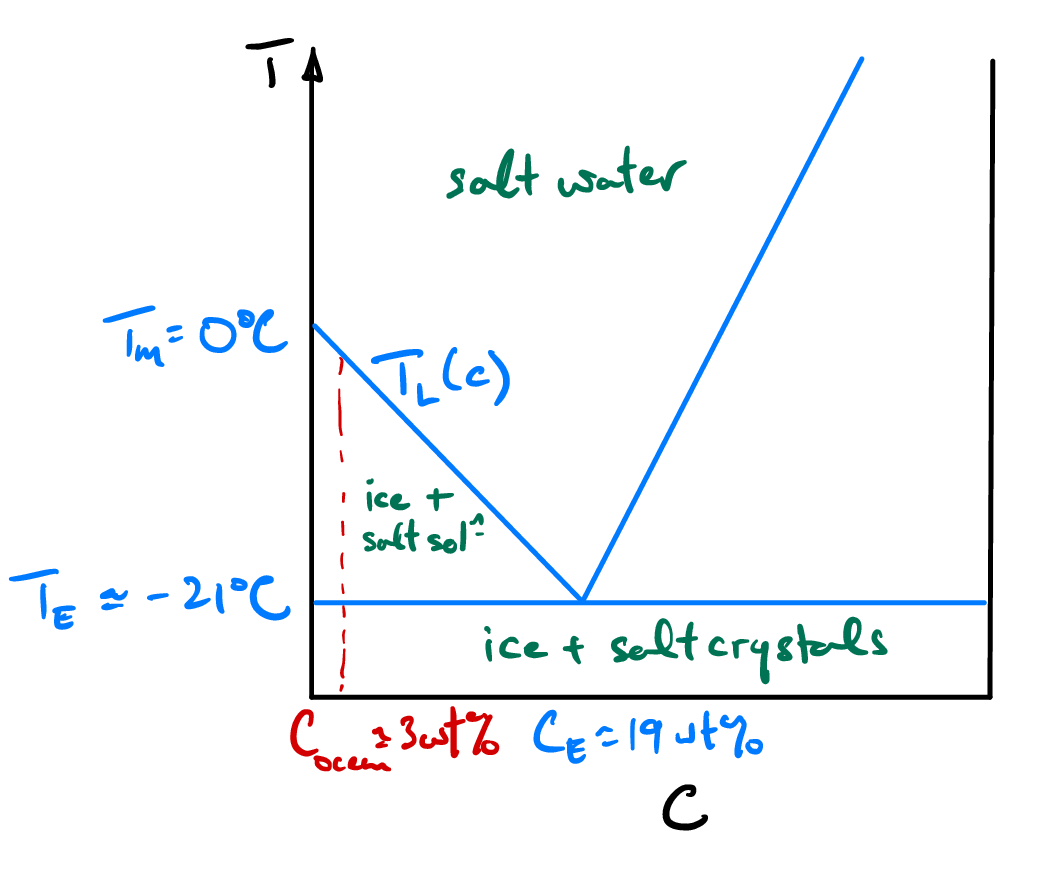 T
salt water
T_m = 0°C
T_L(c)
ice +
salt sol^n
T_E ≃ -21°C
ice + salt crystals
C_ocean ≃ 3wt%
C_E ≃ 19 wt%
C